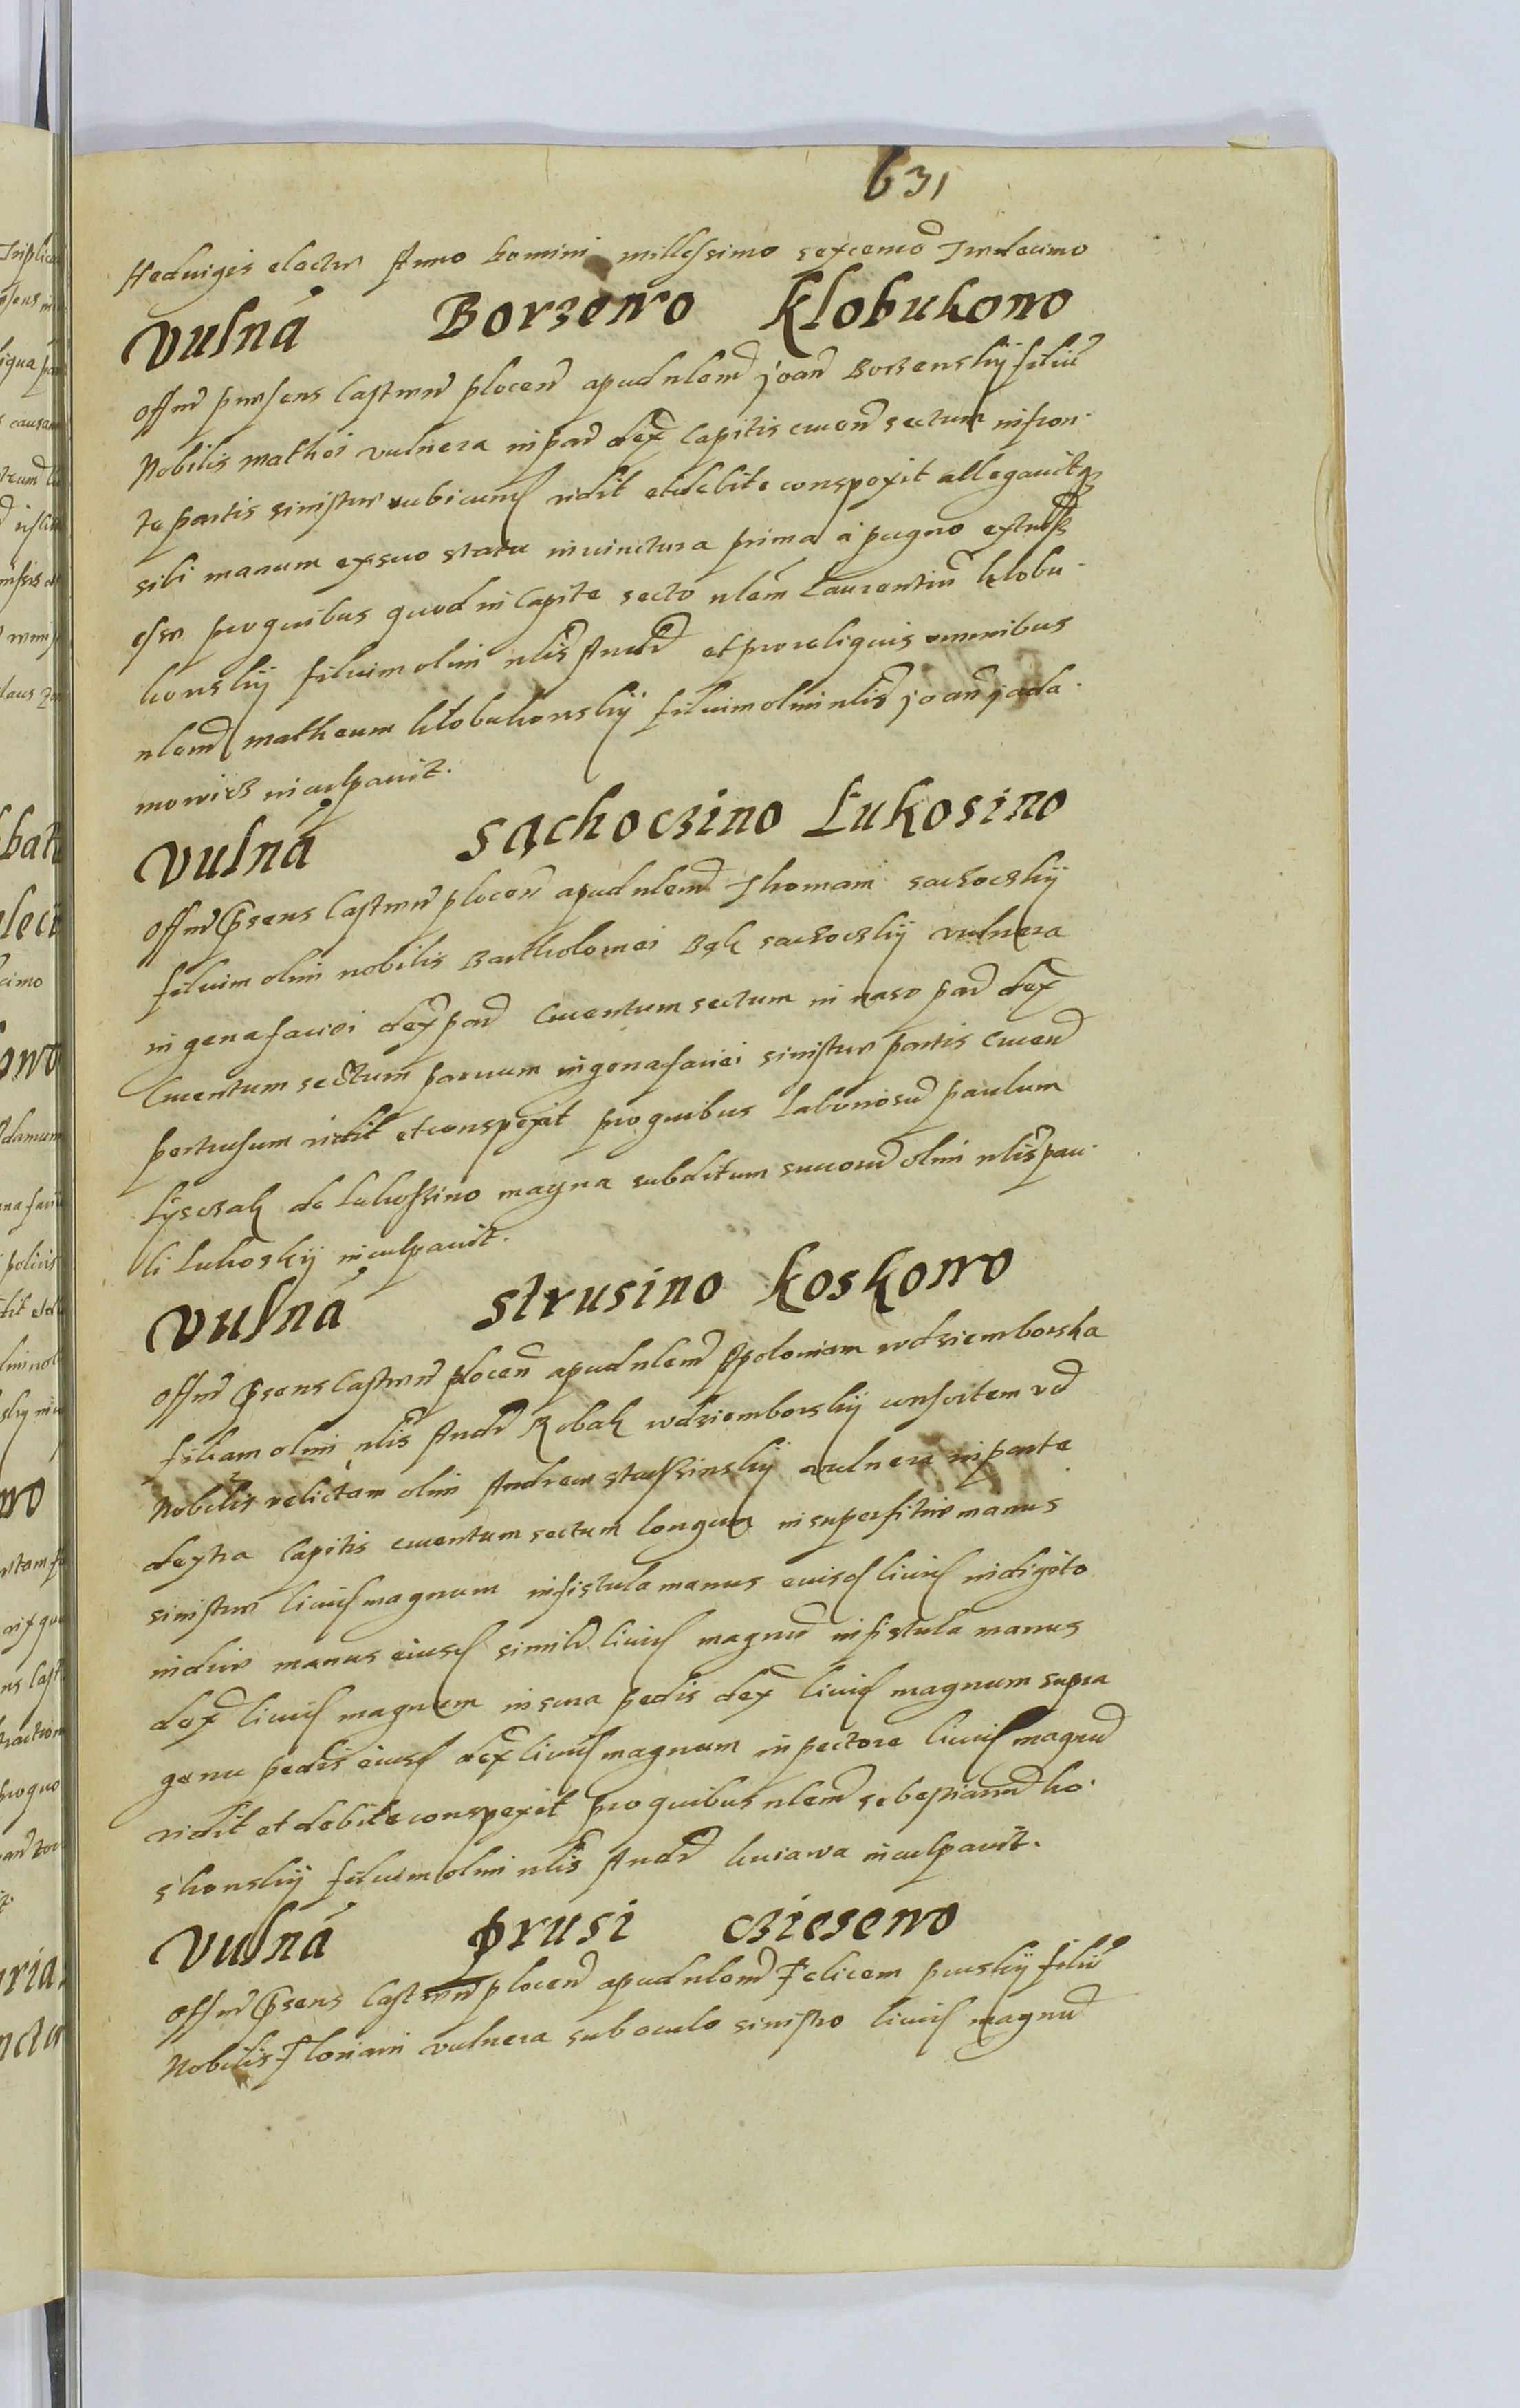 631
Heduigis electæ Anno Domini millesimo sexcenõ Tredecimo
Vulnȧ Borzewo Klobukowo
Offm̃ præsens Castren̄ plocen̄ apud nlem̃ Joan̄ Borzewskij filiũ
Nobilis Mathei vulnera in par̃ dex̃ Capitis cruen̄ sectum in fron-
te partis sinistræ rubicund̃ vidit et debite conspexit allegavitq̃
sibi manum ex suo statu in iunctura prima a pugno
esse pro quibus quod in Capite secto nlem̃ Laurentiũ Klobu-
kowskij filium olim nlis̃ Andr̃ et pro reliquis omnibus
nlem̃ Matheum Kłobukowskij filium olim nlis̃ Joan̄ Jada-
mowicz inculpavit.
Vulnȧ Sąchoczino Łukosino
Offm̃ p̃sens Castren̄ plocen̄ apud nlem̃ Thomam Sachoczkij
filium olim nobilis Bartholomei Bąk Sachoczkij vulnera
in gena faciei dex̃ par̃ Cruentum sectum in naso par̃ dex̃
Cruentum sectum parvum in gena faciei sinistræ partis Cruen̄
pertusum vidit et conspexit pro quibus Laboriosũ Paulum
Łysczak de Lukoszino magna subditum succorũ olim nlis̃ Pau-
li Lukoskij inculpavit.
Vulnȧ Strusino Koskowo
Offm̃ p̃sens Castren̄ plocen̄ apud nlem̃ Apoloniam wdziemborska
filiam olim nlis̃ Andr̃ Robak wdziemborskij consortem vd̃
Nobilis relictam olim Andreæ vulnera in parte
dextra Capitis cruentum sectum longum in superficie manus
sinistræ livid̃ magnum in fistula manus eiusd̃ livid̃ in digito
indice manus eiusd̃ simild̃ livid̃ magnũ in fistula manus
dex̃ livid̃ magnum in sura pedis dex̃ livid̃ magnum supra
genu pedis eiusd̃ dex̃ livid̃ magnum in pectore livid̃ magnũ
vidit et debite conspexit pro quibus nlem̃ Sebestianũ Ko-
skowskij filium olim nlis̃ Andr̃ kuiawa inculpavit.
Vulnȧ Prusi Czieszewo
Offm̃ p̃sens Castren̄ plocen̄ apud nlem̃ Felicem Pruskij filiũ
Nobilis Floriani vulnera sub oculo sinistro livid̃ magnũ